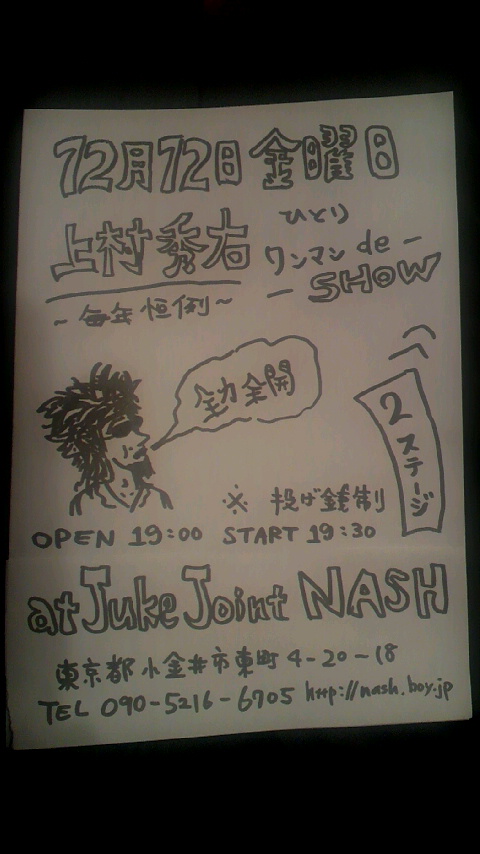 12月12日 金曜日
上村秀右
ひとり
ワンマン de
SHOW
～毎年恒例～
全力全開
2ステージ
※ 投げ銭制
OPEN 19:00 START 19:30
at Juke Joint NASH
東京都小金井市東町4-20-18
TEL 090-5216-6705 http://nash.boy.jp